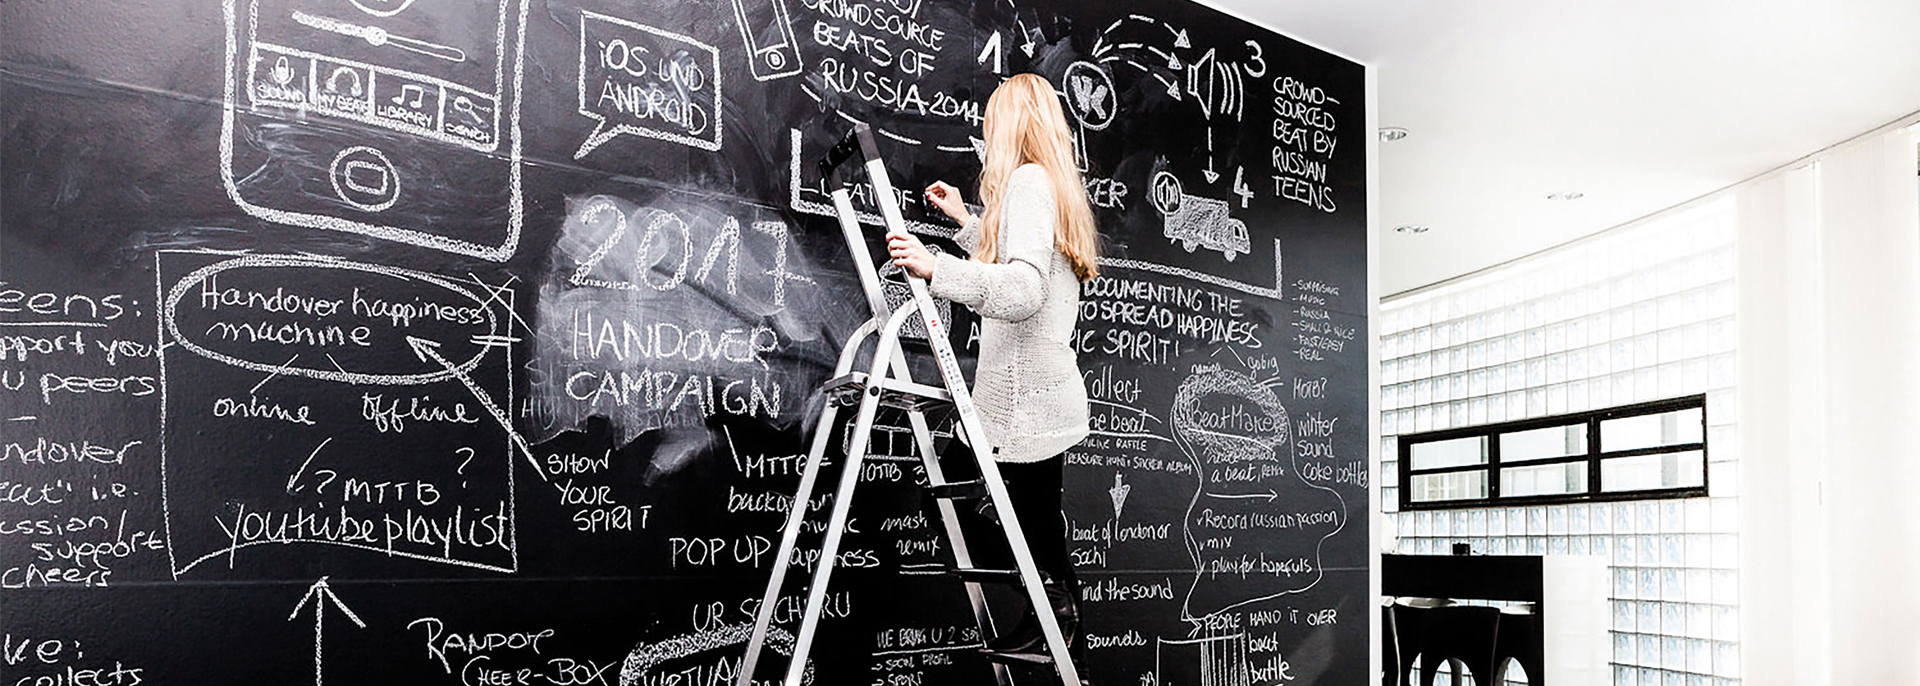 SOUND
MY BEATS
LIBRARY
SEARCH
iOS UND
ANDROID
CROWDSOURCE
BEATS OF
RUSSIA 2014
1
3
4
CROWD-
SOURCED
BEAT BY
RUSSIAN
TEENS
2017
HANDOVER
CAMPAIGN
Handover happiness
machine
online offline
? MTTB ?
youtube playlist
SHOW
YOUR
SPIRIT
eens:
pport your
U peers
ndover
ssion/
support
cheers
ke:
collects
RANDOM
CHEER-BOX
MTTB-
POP UP
mash
remix
DOCUMENTING THE
TO SPREAD HAPPINESS
IC SPIRIT!
- SURPRISING
- MUSIC
- RUSSIA
- SMALL & NICE
- FAST/EASY
- REAL
Collect
the beat
ONLINE RAFFLE
TREASURE HUNT + STICKER ALBUM
beat of london or
Sochi
ind the sound
sounds
going
BeatMaker
a beat, remix
MOTB?
winter
sound
coke bottles
Record russian passion
mix
play for hopefuls
PEOPLE HAND IT OVER
beat
bottle
WE BRING U 2 SO
SOCIAL PROFIL
SPORT